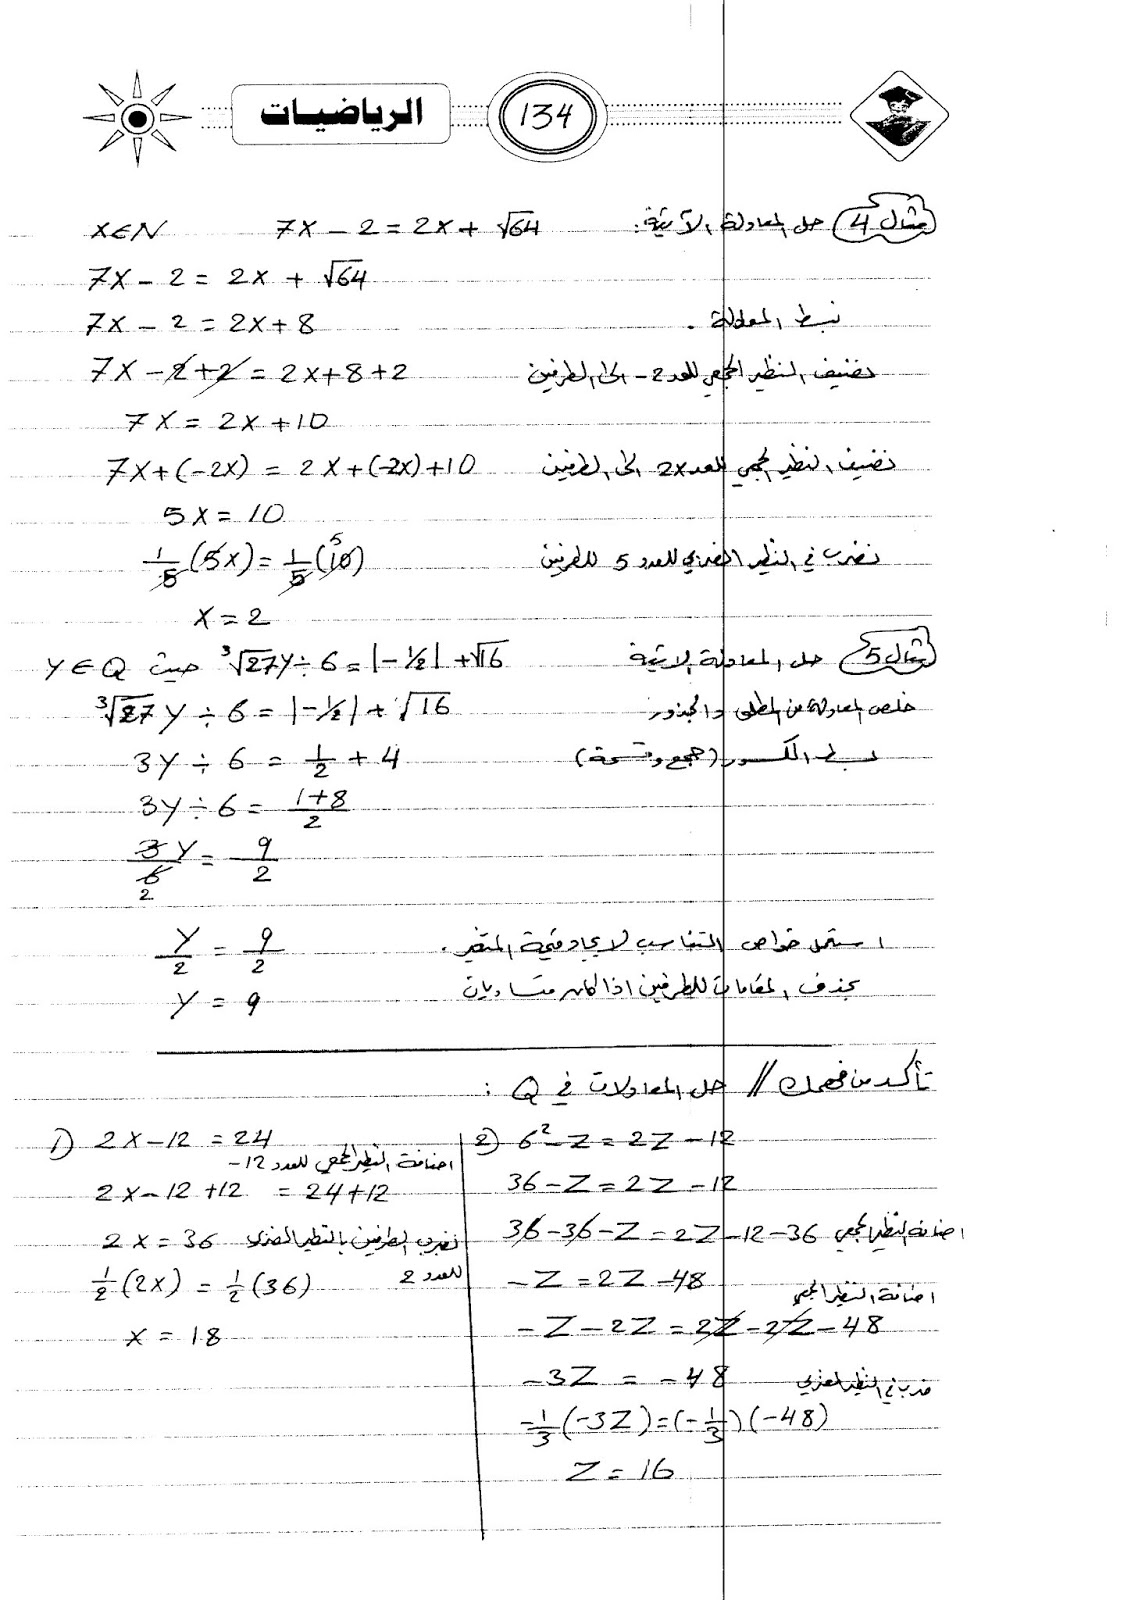 الرياضيات
134
مثال 4 حل المعادلة الآتية: 7x - 2 = 2x + √64 x∈N
7x - 2 = 2x + √64
7x - 2 = 2x + 8 نبسط المعادلة.
7x - 2 + 2 = 2x + 8 + 2 نضيف النظير الجمعي للعدد 2- الى الطرفين
7x = 2x + 10
7x + (-2x) = 2x + (-2x) + 10 نضيف النظير الجمعي للعدد 2x الى الطرفين
5x = 10
1/5 (5x) = 1/5 (10) 5 نضرب في النظير الضربي للعدد 5 للطرفين
x = 2
مثال 5 حل المعادلة الاتية ³√27 y ÷ 6 = |-1/2| + √16 حيث y ∈ Q
³√27 y ÷ 6 = |-1/2| + √16 خلص المعادلة من المطلق والجذور
3y ÷ 6 = 1/2 + 4 بسط الكسور (جمع وقسمة)
3y ÷ 6 = (1+8)/2
3y/6 = 9/2
2
y/2 = 9/2 استعمل خواص التناسب لايجاد قيمة المتغير.
y = 9 بحذف المقامات للطرفين اذا كانت متساويات
تأكد من فهمك // حل المعادلات في Q :
1) 2x - 12 = 24
اضافة النظير الجمعي للعدد 12-
2x - 12 + 12 = 24 + 12
2x = 36 نضرب الطرفين بالنظير الضربي
للعدد 2
1/2 (2x) = 1/2 (36)
x = 18
2) 6² - z = 2z - 12
36 - z = 2z - 12
36 - 36 - z = 2z - 12 - 36 اضافة النظير الجمعي
-z = 2z - 48 اضافة النظير الجمعي
-z - 2z = 2z - 2z - 48
-3z = -48 ضرب في النظير الضربي
-1/3 (-3z) = (-1/3)(-48)
z = 16